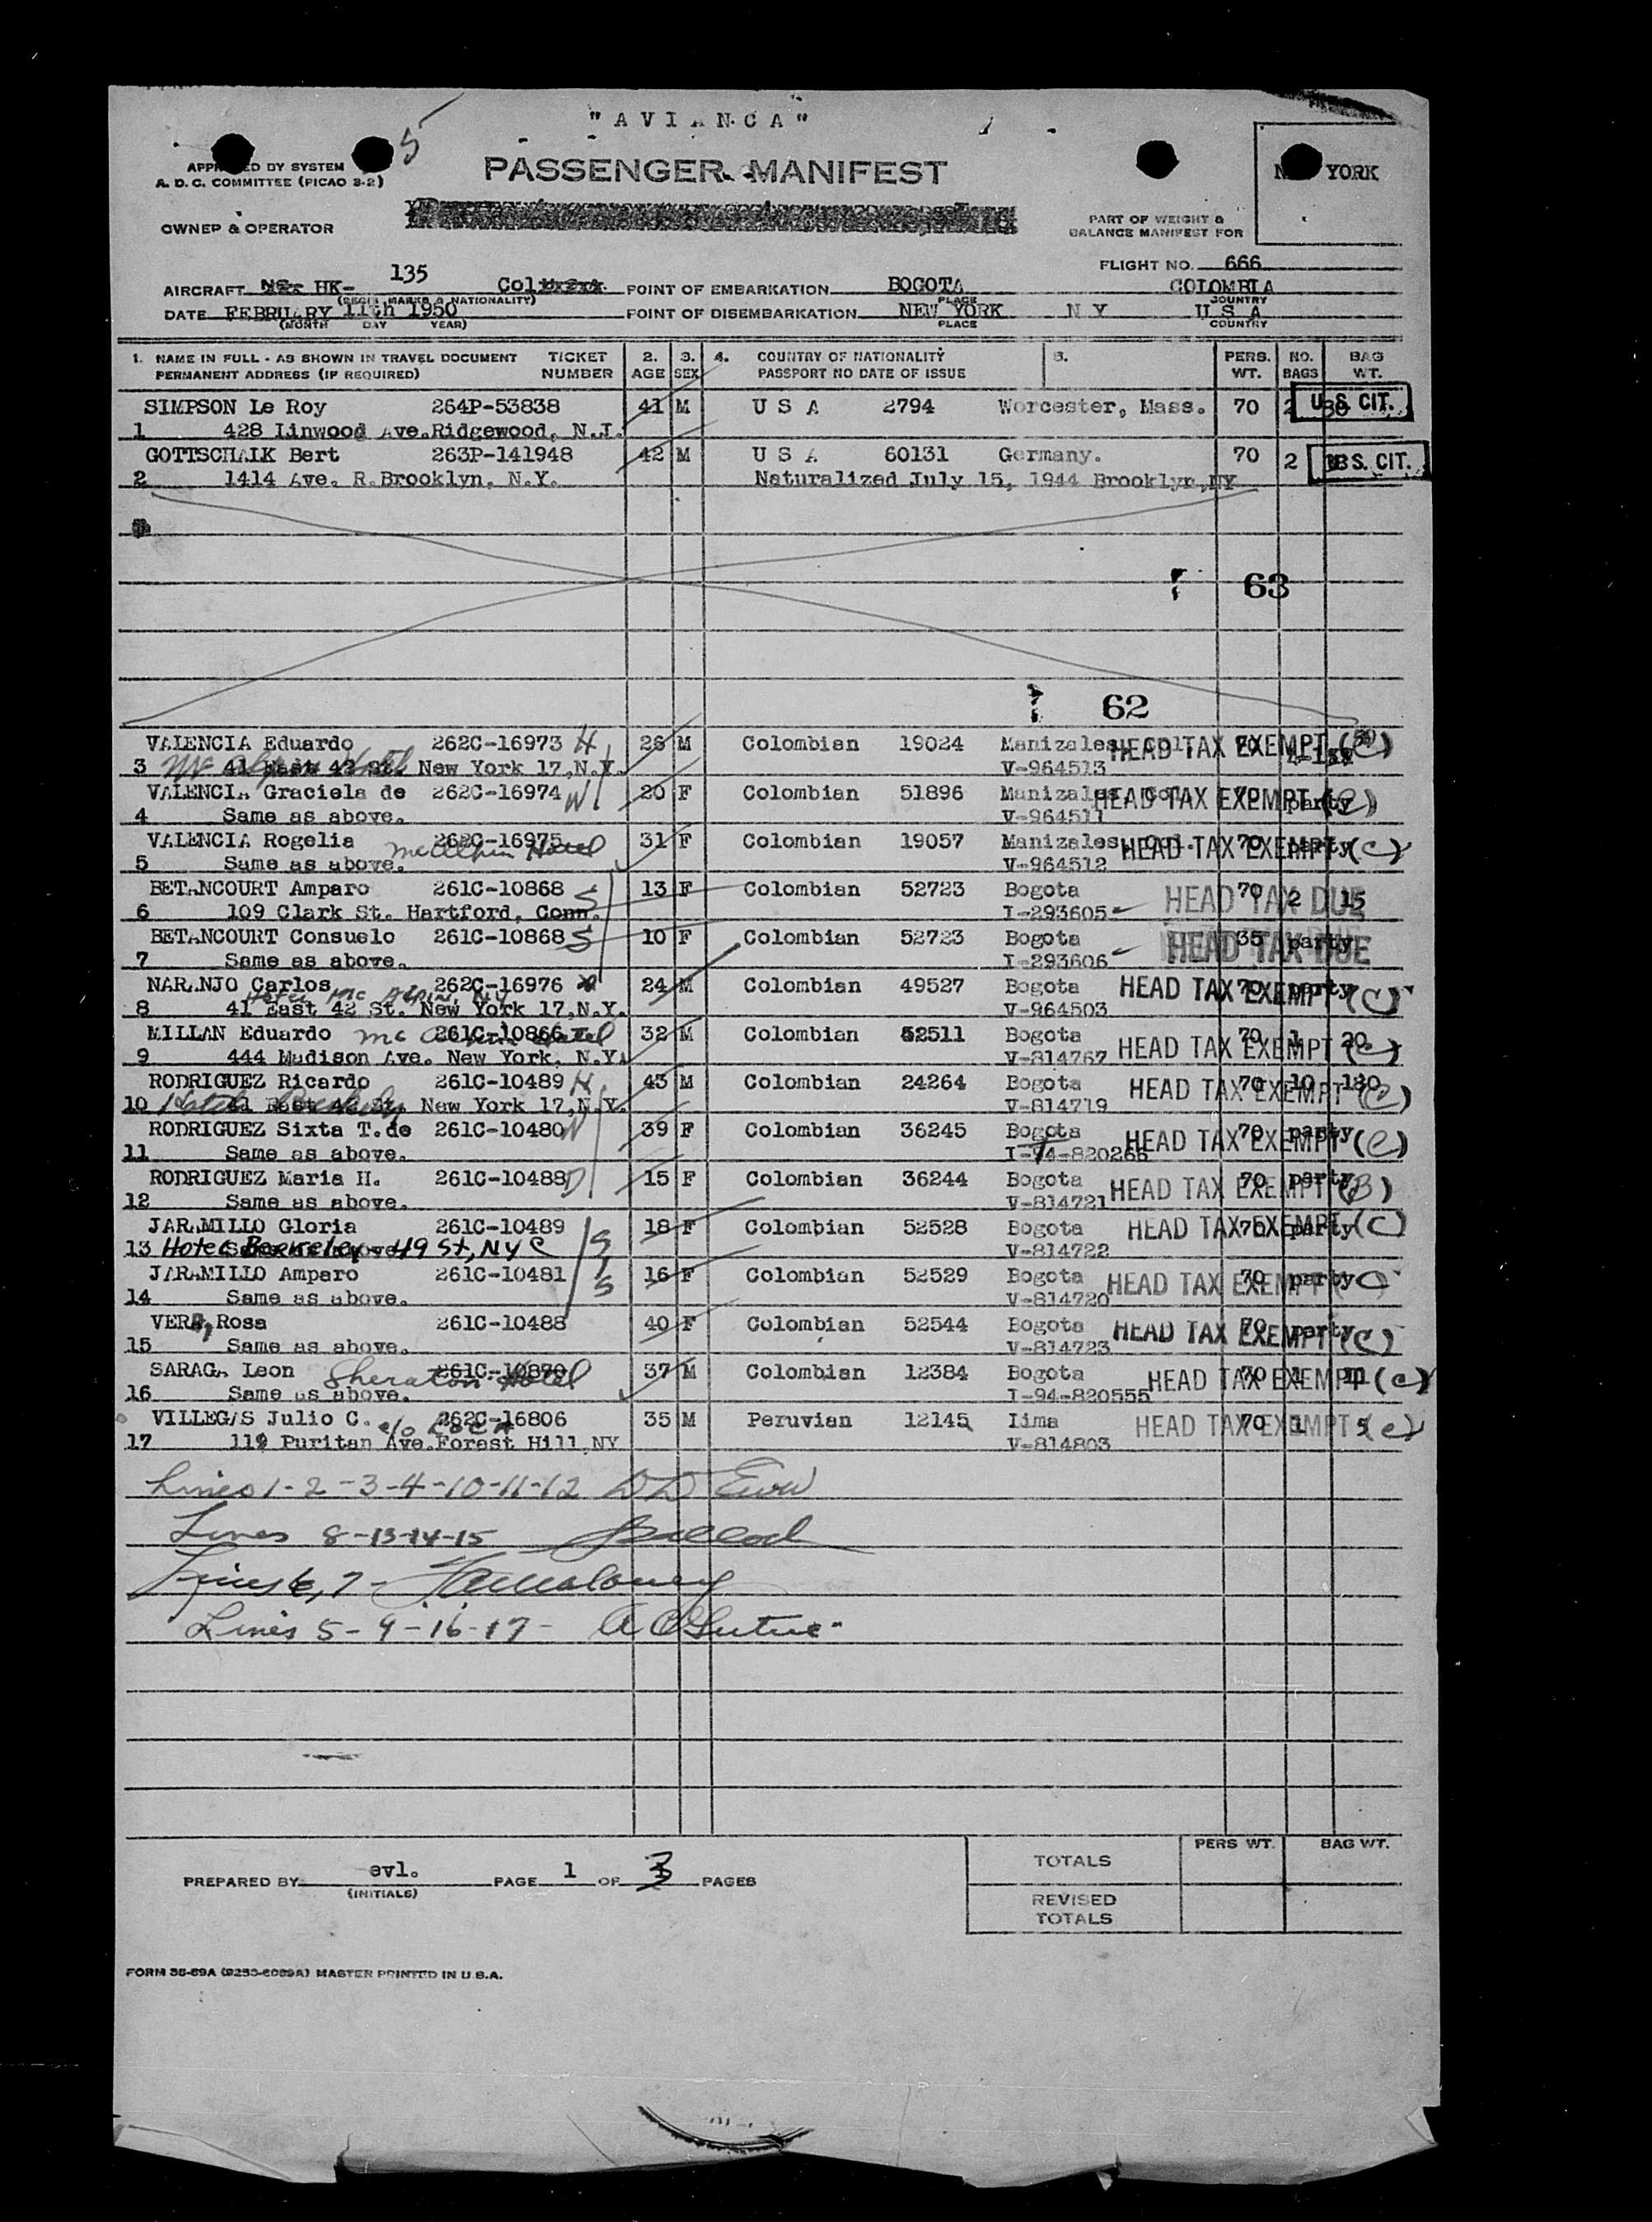 "AVIANCA"
5
APPROVED BY SYSTEM
A. D. C. COMMITTEE (PICAO 3-2)
PASSENGER MANIFEST
NEW YORK
OWNER & OPERATOR
PART OF WEIGHT &
BALANCE MANIFEST FOR
FLIGHT NO. 666
135
AIRCRAFT HK- Col POINT OF EMBARKATION BOGOTA COLOMBIA
(REGIS. MARKS & NATIONALITY) PLACE COUNTRY
DATE FEBRUARY 11th 1950 POINT OF DISEMBARKATION NEW YORK N Y U S A
(MONTH DAY YEAR) PLACE COUNTRY
1. NAME IN FULL - AS SHOWN IN TRAVEL DOCUMENT TICKET 2. 3. 4. COUNTRY OF NATIONALITY 5. PERS. NO. BAG
PERMANENT ADDRESS (IF REQUIRED) NUMBER AGE SEX PASSPORT NO DATE OF ISSUE WT. BAGS WT.
SIMPSON Le Roy 264P-53838 41 M U S A 2794 Worcester, Mass. 70 2 U. S. CIT.
1 428 Linwood Ave.Ridgewood, N.J.
GOTTSCHALK Bert 263P-141948 42 M U S A 60131 Germany. 70 2 U. S. CIT.
2 1414 Ave. R.Brooklyn, N.Y. Naturalized July 15, 1944 Brooklyn,NY
63
62
VALENCIA Eduardo 262C-16973 H 26 M Colombian 19024 Manizales, Col. 70 HEAD TAX EXEMPT (C)
3 41 East 42 St. New York 17,N.Y. V-964513
VALENCIA Graciela de 262C-16974 W 20 F Colombian 51896 Manizales, Col. 70 party HEAD TAX EXEMPT (C)
4 Same as above. V-964511
VALENCIA Rogelia 262C-16975 31 F Colombian 19057 Manizales, Col. 70 party HEAD TAX EXEMPT (C)
McAlpin Hotel
5 Same as above. V-964512
BETANCOURT Amparo 261C-10868 S 13 F Colombian 52723 Bogota 70 2 15 HEAD TAX DUE
6 109 Clark St. Hartford, Conn. I-293605
BETANCOURT Consuelo 261C-10868 S 10 F Colombian 52723 Bogota 35 party HEAD TAX DUE
7 Same as above. I-293606
NARANJO Carlos 262C-16976 24 M Colombian 49527 Bogota 70 party HEAD TAX EXEMPT (C)
Hotel Mc Alpin, NY
8 41 East 42 St. New York 17,N.Y. V-964503
MILLAN Eduardo Mc Alpin Hotel 261C-10866 32 M Colombian 52511 Bogota 70 1 20 HEAD TAX EXEMPT (C)
9 444 Madison Ave. New York, N.Y. V-814767
RODRIGUEZ Ricardo 261C-10489 H 43 M Colombian 24264 Bogota 70 10 180 HEAD TAX EXEMPT (C)
10 41 East 42 St. New York 17,N.Y. V-814719
RODRIGUEZ Sixta T.de 261C-10480 W 39 F Colombian 36245 Bogota 70 party HEAD TAX EXEMPT (C)
11 Same as above. I-94-820266
RODRIGUEZ Maria H. 261C-10488 D 15 F Colombian 36244 Bogota 70 party HEAD TAX EXEMPT (B)
12 Same as above. V-814721
JARAMILLO Gloria 261C-10489 S 18 F Colombian 52528 Bogota 70 party HEAD TAX EXEMPT (C)
13 Hotel Berkeley - 49 St, NYC V-814722
JARAMILLO Amparo 261C-10481 S 16 F Colombian 52529 Bogota 70 party HEAD TAX EXEMPT (C)
14 Same as above. V-814720
VERA, Rosa 261C-10488 40 F Colombian 52544 Bogota 70 party HEAD TAX EXEMPT (C)
15 Same as above. V-814723
SARAGA Leon Sheraton Hotel 261C-10870 37 M Colombian 12384 Bogota 70 1 HEAD TAX EXEMPT (C)
16 Same as above. I-94-820555
VILLEGAS Julio C. 262C-16806 35 M Peruvian 12145 Lima 70 1 5 HEAD TAX EXEMPT (C)
17 119 Puritan Ave.Forest Hill,NY V-814803
Lines 1-2-3-4-10-11-12
Lines 8-13-14-15
Lines 6,7-
Lines 5-9-16-17-
PERS WT. BAG WT.
TOTALS
PREPARED BY evl. PAGE 1 OF 3 PAGES
(INITIALS)
REVISED
TOTALS
FORM 36-69A (9253-6089A) MASTER PRINTED IN U.S.A.